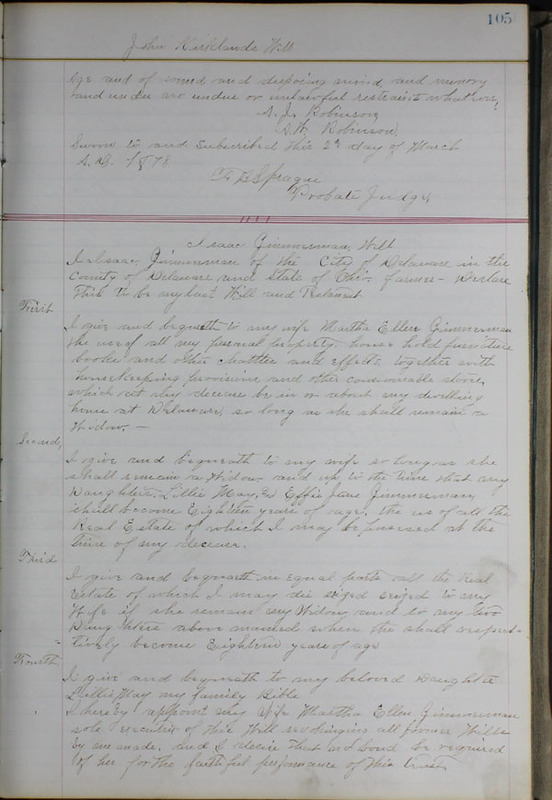 105
John Kirklands Will
Age and of sound and disposing mind and memory
and under no undue or unlawful restraint whatever,
A. J. Robinson
Robinson,
Sworn to and Subscribed this 2d day of March
A.D. 1878
Sprague
Probate Judge
Isaac Zimmerman, Will
I Isaac Zimmerman of the City of Delaware in the
County of Delaware and State of Ohio. farmer - Declare
This to be my last Will and Testament
First
I give and bequeath to my wife Martha Ellen Zimmerman
the use of all my personal property. house hold furniture
books and other chattles and effects, together with
housekeeping provisions and other consumable stores,
which at my decease be in or about my dwelling
house at Delaware, so long as she shall remain a
Widow. -
Second,
I give and bequeath to my wife so long as she
shall remain a Widow and up to the time that my
Daughters, Lillie May, & Effie Jane Zimmerman,
shall become Eighteen years of age, the use of all the
Real Estate of which I may be possessed at the
time of my decease.
Third
I give and bequeath in equal parts all the real
Estate of which I may die seized to my
Wife if she remain my Widow and to my two
Daughters above named when the shall respec-
tively become Eighteen years of age
Fourth
I give and bequeath to my beloved Daughter
Lillie May my family Bible
I hereby appoint my Wife Martha Ellen Zimmerman
sole executor of this Will revokeing all former Wills
by me made. And I desire that no bond be required
of her for the faithful performance of this trust